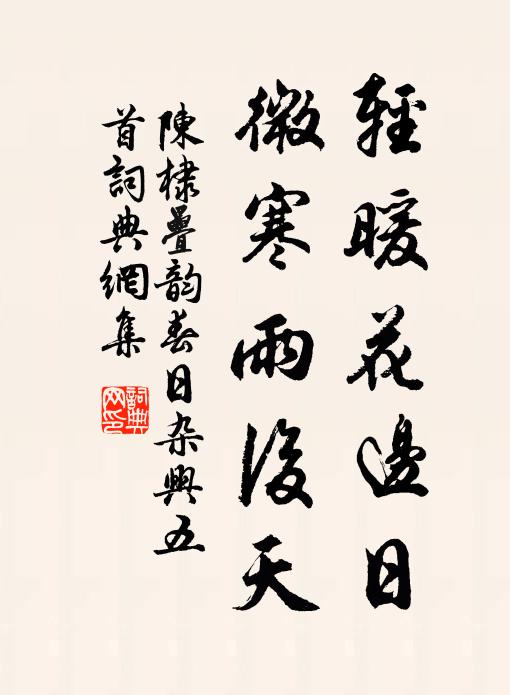 輕暖花邊日
微寒雨後天
陳棣疊韵春日杂興五
首詞典網集
詞典网印